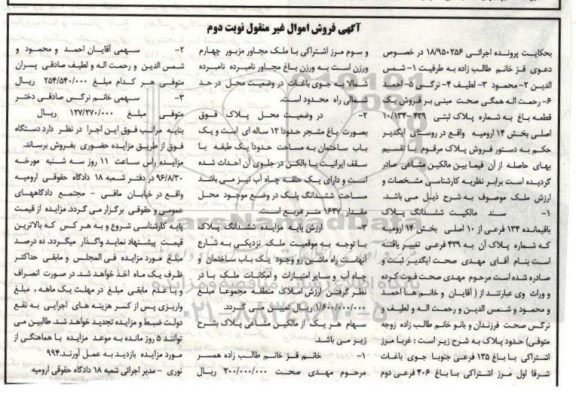 آگهی فروش اموال غیر منقول نوبت دوم
بحکایت پرونده اجرائی ۱۸/۹۵۰۲۵۶ در خصوص
دعوی قز خانم طالب زاده به طرفیت ۱- شمس
الدین ۲- محمود ۳- لطیف ۴- نرگس ۵- احمد
۶- رحمت اله همگی صحت مبنی بر فروش یک
قطعه باغ به شماره پلاک ثبتی
اصلی بخش ۱۴ ارومیه واقع در روستای ایگدیر
حکم به دستور فروش پلاک مرقوم با تقسیم
بهای حاصله از آن فیما بین مالکین مشاعی صادر
گردیده است برابر نظریه کارشناسی مشخصات و
ارزش ملک موصوف به شرح ذیل می باشد.
۱- سند مالکیت ششدانگ پلاک
باقیمانده ۱۳۴ فرعی از ۱۰ اصلی بخش ۱۴ ارومیه
که شماره پلاک آن به ۴۳۹ فرعی تغییر یافته
است بنام آقای مهدی صحت ایگدیر ثبت و
صادر شده است مرحوم مهدی صحت فوت کرده
و وراث وی عبارتند از ( آقایان و خانم ها احمد
و محمود و شمس الدین و رحمت اله و لطیف و
نرگس صحت فرزندان و بانو خانم طالب زاده زوجه
متوفی) حدود پلاک به شرح زیر است : غربا مرز
اشتراکی با باغ ۱۳۵ فرعی جنوبا جوی باغات
شرقا اول مرز اشتراکی با باغ ۳۰۶ فرعی دوم
و سوم مرز اشتراکی با ملک مجاور مزبور چهارم
ورزن است به ورزن باغ مجاور نامبرده نامبرده
شمالا به جوی باغات در وضعیت محل در حد
شمالی راه محدود است.
۲- در وضعیت محل پلاک فوق
بصورت باغ مشجر حدودا ۱۲ ساله ای است و یک
باب ساختمان به مساحت حدودا یک طبقه با
سقف ایرانیت با بالکن در جلوی آن احداث شده
است و دارای یک حلقه چاه آب نیز می باشد
مساحت ششدانگ پلک در وضع موجود محل
مقدار ۱۶۴۷ متر مربع است
ارزش پایه مزایده ششدانگ پلاک
با توجه به موقعیت ملک نزدیکی به شارع
انهاست راه ماشین رو وجود یک باب ساختمان و
چاه آب و سایر امتیازات و امکانات ملک با در
نظر گرفتن ارزش املاک منطقه مجموعا مبلغ
۱/۶۰۰/۰۰۰/۰۰۰ ریال تعیین می گردد.
سهام هر یک از مالکین مشاعی پلاک بشرح
زیر می باشد
۱- خانم قز خانم طالب زاده همسر
مرحوم مهدی صحت ۲۰۰/۰۰۰/۰۰۰ ریال
۲- سهمی آقایان احمد و محمود و
شمس الدین و رحمت اله و لطیف صادقی پسران
متوفی هر کدام مبلغ ۲۵۴/۵۴۰/۰۰۰ ریال
۳- سهمی خانم نرگس صادقی دختر
متوفی مبلغ ۱۲۷/۲۷۰/۰۰۰ ریال
بنابه مراتب فوق این اجرا در نظر دارد دستگاه
فوق از طریق مزایده حضوری بفروش برساند.
مزایده راس ساعت ۱۱ روز سه شنبه مورخه
۹۶/۸/۳۰ در دفتر شعبه ۱۸ دادگاه حقوقی ارومیه
واقع در خیابان مافی - مجتمع دادگاههای
عمومی و حقوقی برگزار می گردد. مزایده از قیمت
پایه کارشناسی شروع و به هر کس که بالاترین
قیمت پیشنهاد نماید واگذار میگردد. ده درصد
مبلغ مورد مزایده فی المجلس و مابقی حداکثر
ظرف یک ماه اخذ خواهد شد. در صورت انصراف
و یا عدم مابقی مبلغ در مهلت یک ماهه ، مبلغ
واریزی پس از کسر هزینه های اجرایی به نفع
دولت ضبط و مزایده تجدید خواهد شد. طالبین می
توانند ۵ روز مانده به موعد مزایده با هماهنگی از
مورد مزایده بازدید به عمل آورند.۹۹۴
نوری - مدیر اجرائی شعبه ۱۸ دادگاه حقوقی ارومیه